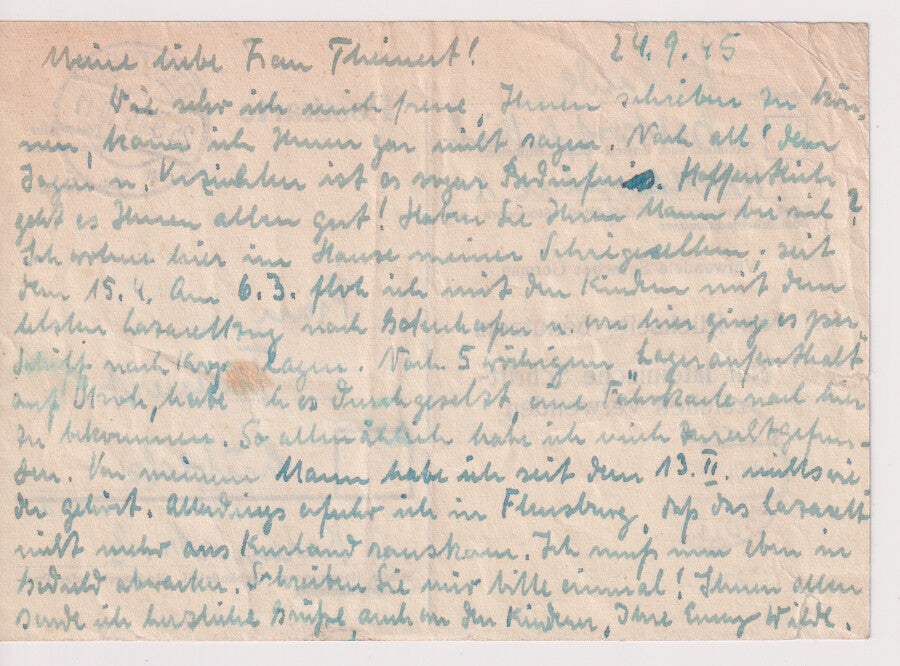 Meine liebe Frau Theinert! 24.9.45
Wie sehr ich mich freue, Ihnen schreiben zu kön-
nen, kann ich Ihnen gar nicht sagen. Nach all' dem
Jagen u. Verzichten ist es sogar Bedürfnis. Hoffentlich
geht es Ihnen allen gut! Haben Sie Ihren Mann bei sich?
Ich wohne hier im Hause meiner Schwiegereltern, seit
dem 15.4. Am 6.3. floh ich mit den Kindern mit dem
letzten Lazarettzug nach Gotenhafen u. von hier ging es per
Schiff nach Kopenhagen. Nach 5 wöchigem "Lageraufenthalt"
auf Stroh, habe ich es durchgesetzt, eine Fahrkarte nach hier
zu bekommen. So allmählich habe ich mich zurechtgefun-
den. Von meinem Mann habe ich seit dem 13.II. nichts wie
der gehört. Allerdings erfuhr ich in Flensburg, daß das Lazarett
nicht mehr aus Kurland rauskam. Ich muß nun eben in
Geduld abwarten. Schreiben Sie mir bitte einmal! Ihnen allen
sende ich herzliche Grüße, auch von den Kindern, Ihre Emmy Wilde.